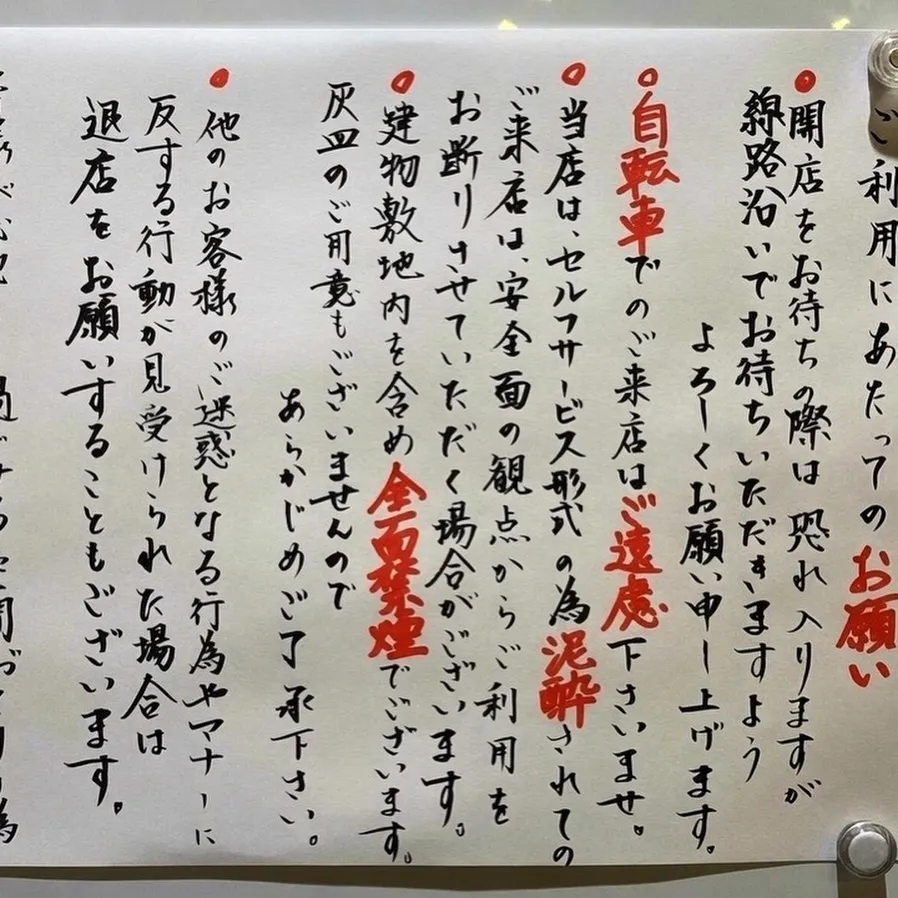 ご利用にあたってのお願い
●開店をお待ちの際は恐れ入りますが
線路沿いでお待ちいただきますよう
よろしくお願い申し上げます。
○自転車でのご来店はご遠慮下さいませ。
●当店は、セルフサービス形式の為泥酔されての
ご来店は、安全面の観点からご利用を
お断りさせていただく場合がございます。
●建物敷地内を含め全面禁煙でございます。
灰皿のご用意もございませんので
あらかじめご了承下さい。
●他のお客様のご迷惑となる行為やマナーに
反する行動が見受けられた場合は
退店をお願いすることもございます。